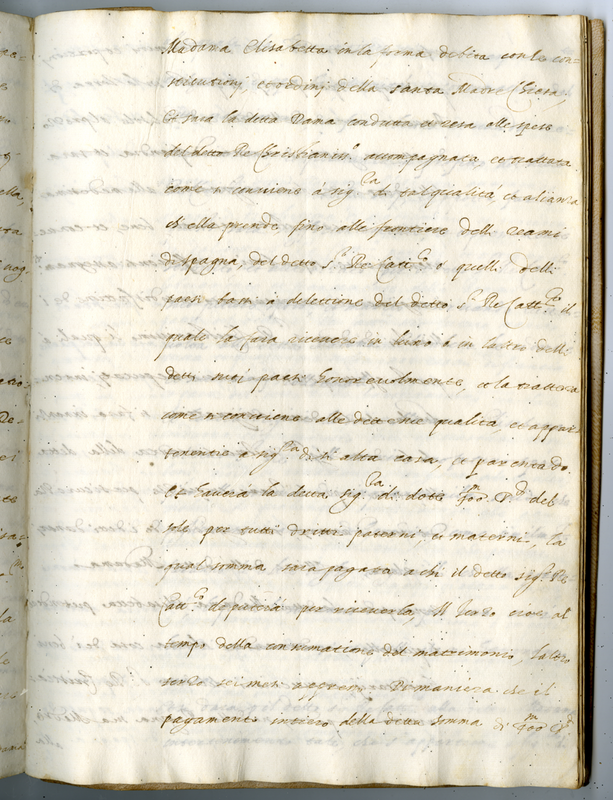 Madama Elisabetta in la forma debita con le con-
stitutioni, et ordini della santa Madre Chiesa,
Et sarà la detta Dama condutta et resa alle spese
del detto Re Christianiss.º accompagnata, et trattata
come si conviene à sig.ra di tal qualità et alianza
ch'ella prende, fino alle frontiere delli reami
di spagna, del detto s.r Re Catt.co ò quelli delli
paesi bassi à delettione del detto s.r Re Catt.co il
quale la farà ricevere in l'uno ò in l'altro delli
detti suoi paesi honorevolmente, et la tratterà
come si conviene alle dette sue qualità, et appar-
tenentie a sig.ra di sì alta casa, et parentado.
Et haverà la detta sig.ra di dote 400.m del
sole per tutti dritti paterni, et materni, la
qual somma sarà pagata a chi il detto sig.r Re
Catt.co deputerà per riceverla, Il terzo cioè al
tempo della consumatione del matrimonio, l'altro
terzo sei mesi appresso Di maniera che il
pagamento intiero della detta somma di 400.m